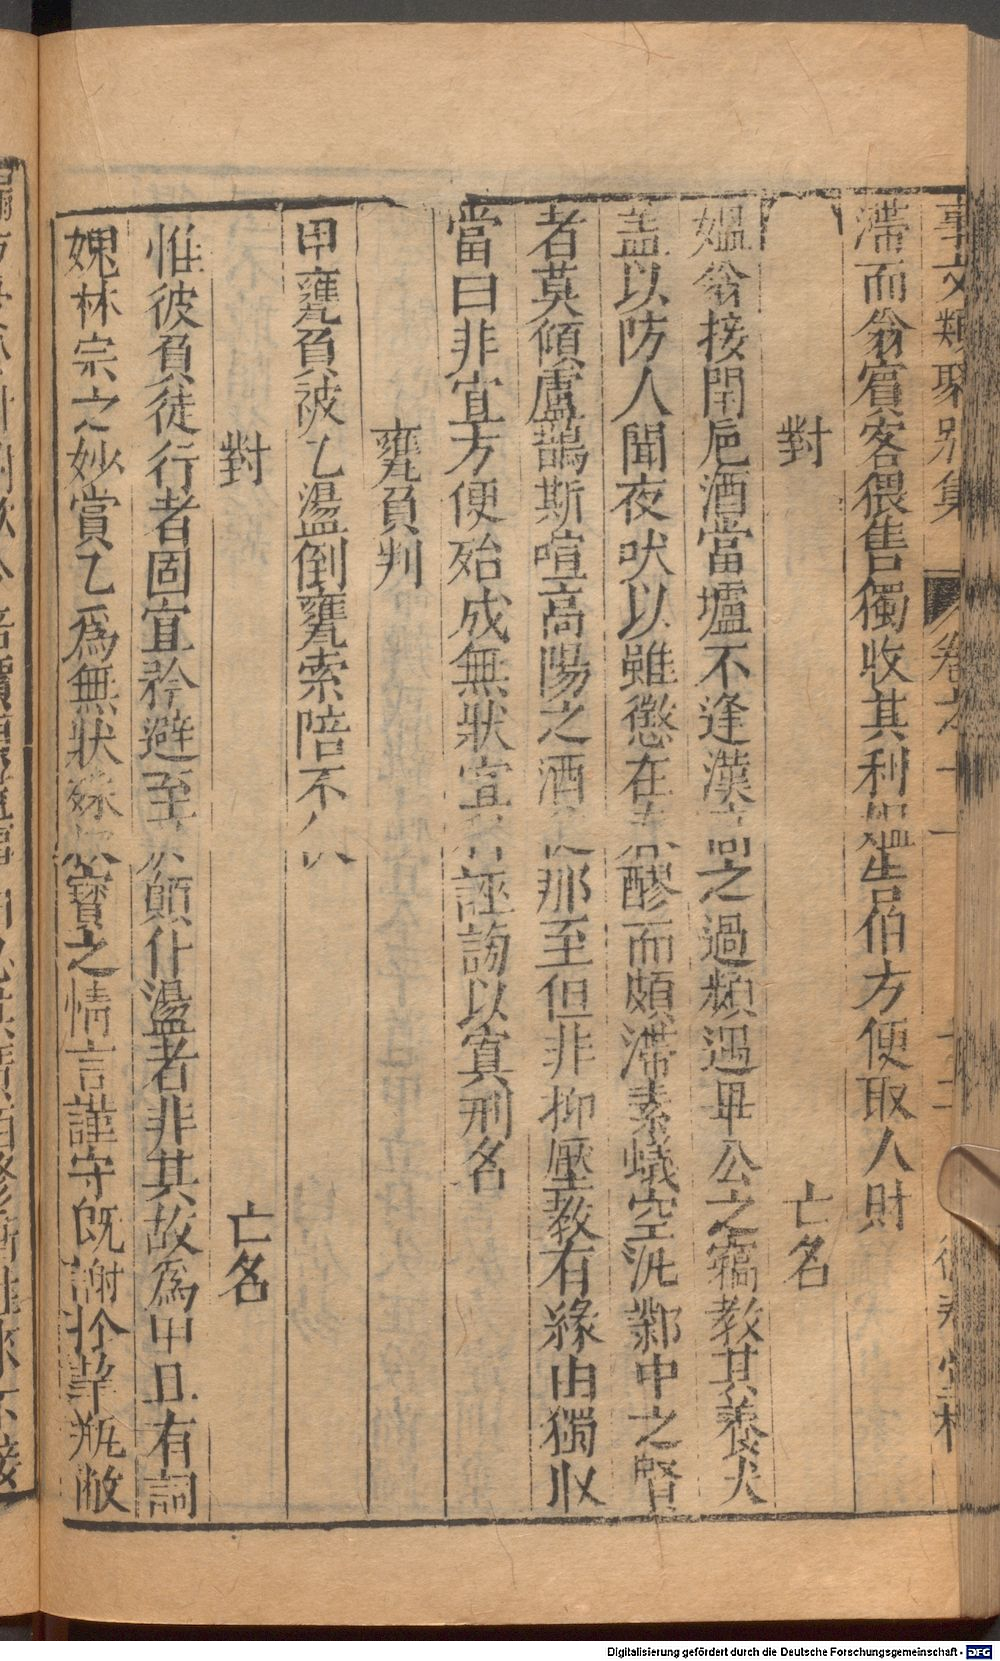 事文類聚別集 卷之十一
滯而翁賓客猥售獨收其利媼告伯方便取人財
對 亡名
媼翁接閈巵酒當壚不逢漢高之過頻遇畢公之竊教其養犬
盖以防人聞夜吠以雖懲在春醪而頗滯素蟻空泚鄴中之賢
者莫傾盧鵲斯喧高陽之酒徒那至但非抑壓教有緣由獨收
當曰非宜方便殆成無狀宜者誣謗以寘刑名
甕負判
甲甕負被乙盪倒甕索陪不伏
對 亡名
惟彼負徒行者固宜矜避至於顛仆盪者非其故為甲且有詞
媿林宗之妙賞乙為無狀殊寶之情言謹守既謝於挈瓶敝
Digitalisierung gefördert durch die Deutsche Forschungsgemeinschaft - DFG